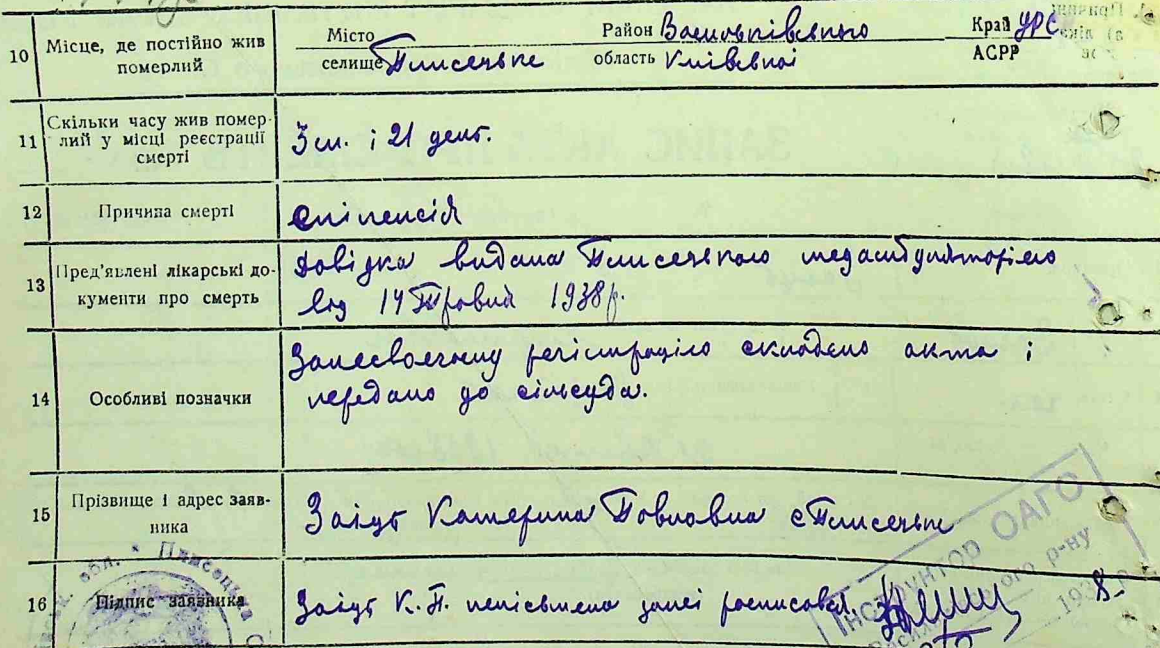 10 Місце, де постійно жив померлий
Місто селище Плисецьке Район Васильківського область Київської Край АСРР УРС
11 Скільки часу жив помер-
лий у місці реєстрації
смерті
3 м. і 21 день.
12 Причина смерті
епілепсія
13 Пред'явлені лікарські до-
кументи про смерть
довідка видана Плисецькою медамбулаторією
від 14 Травня 1938 р.
14 Особливі позначки
регістрацію складено акта і
передано до сільсуда.
15 Прізвище і адрес заяв-
ника
Заіць Катерина Павловна с Плисецьке
16 Підпис заявника
Заіць К. П. неписьмена
ІНСТРУКТОР ОАГС
р-ну
193 8